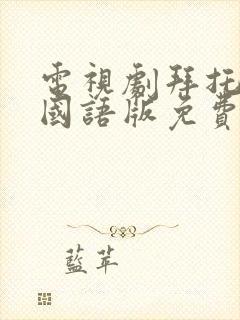 電視劇拜托
國語版免費
藍苹